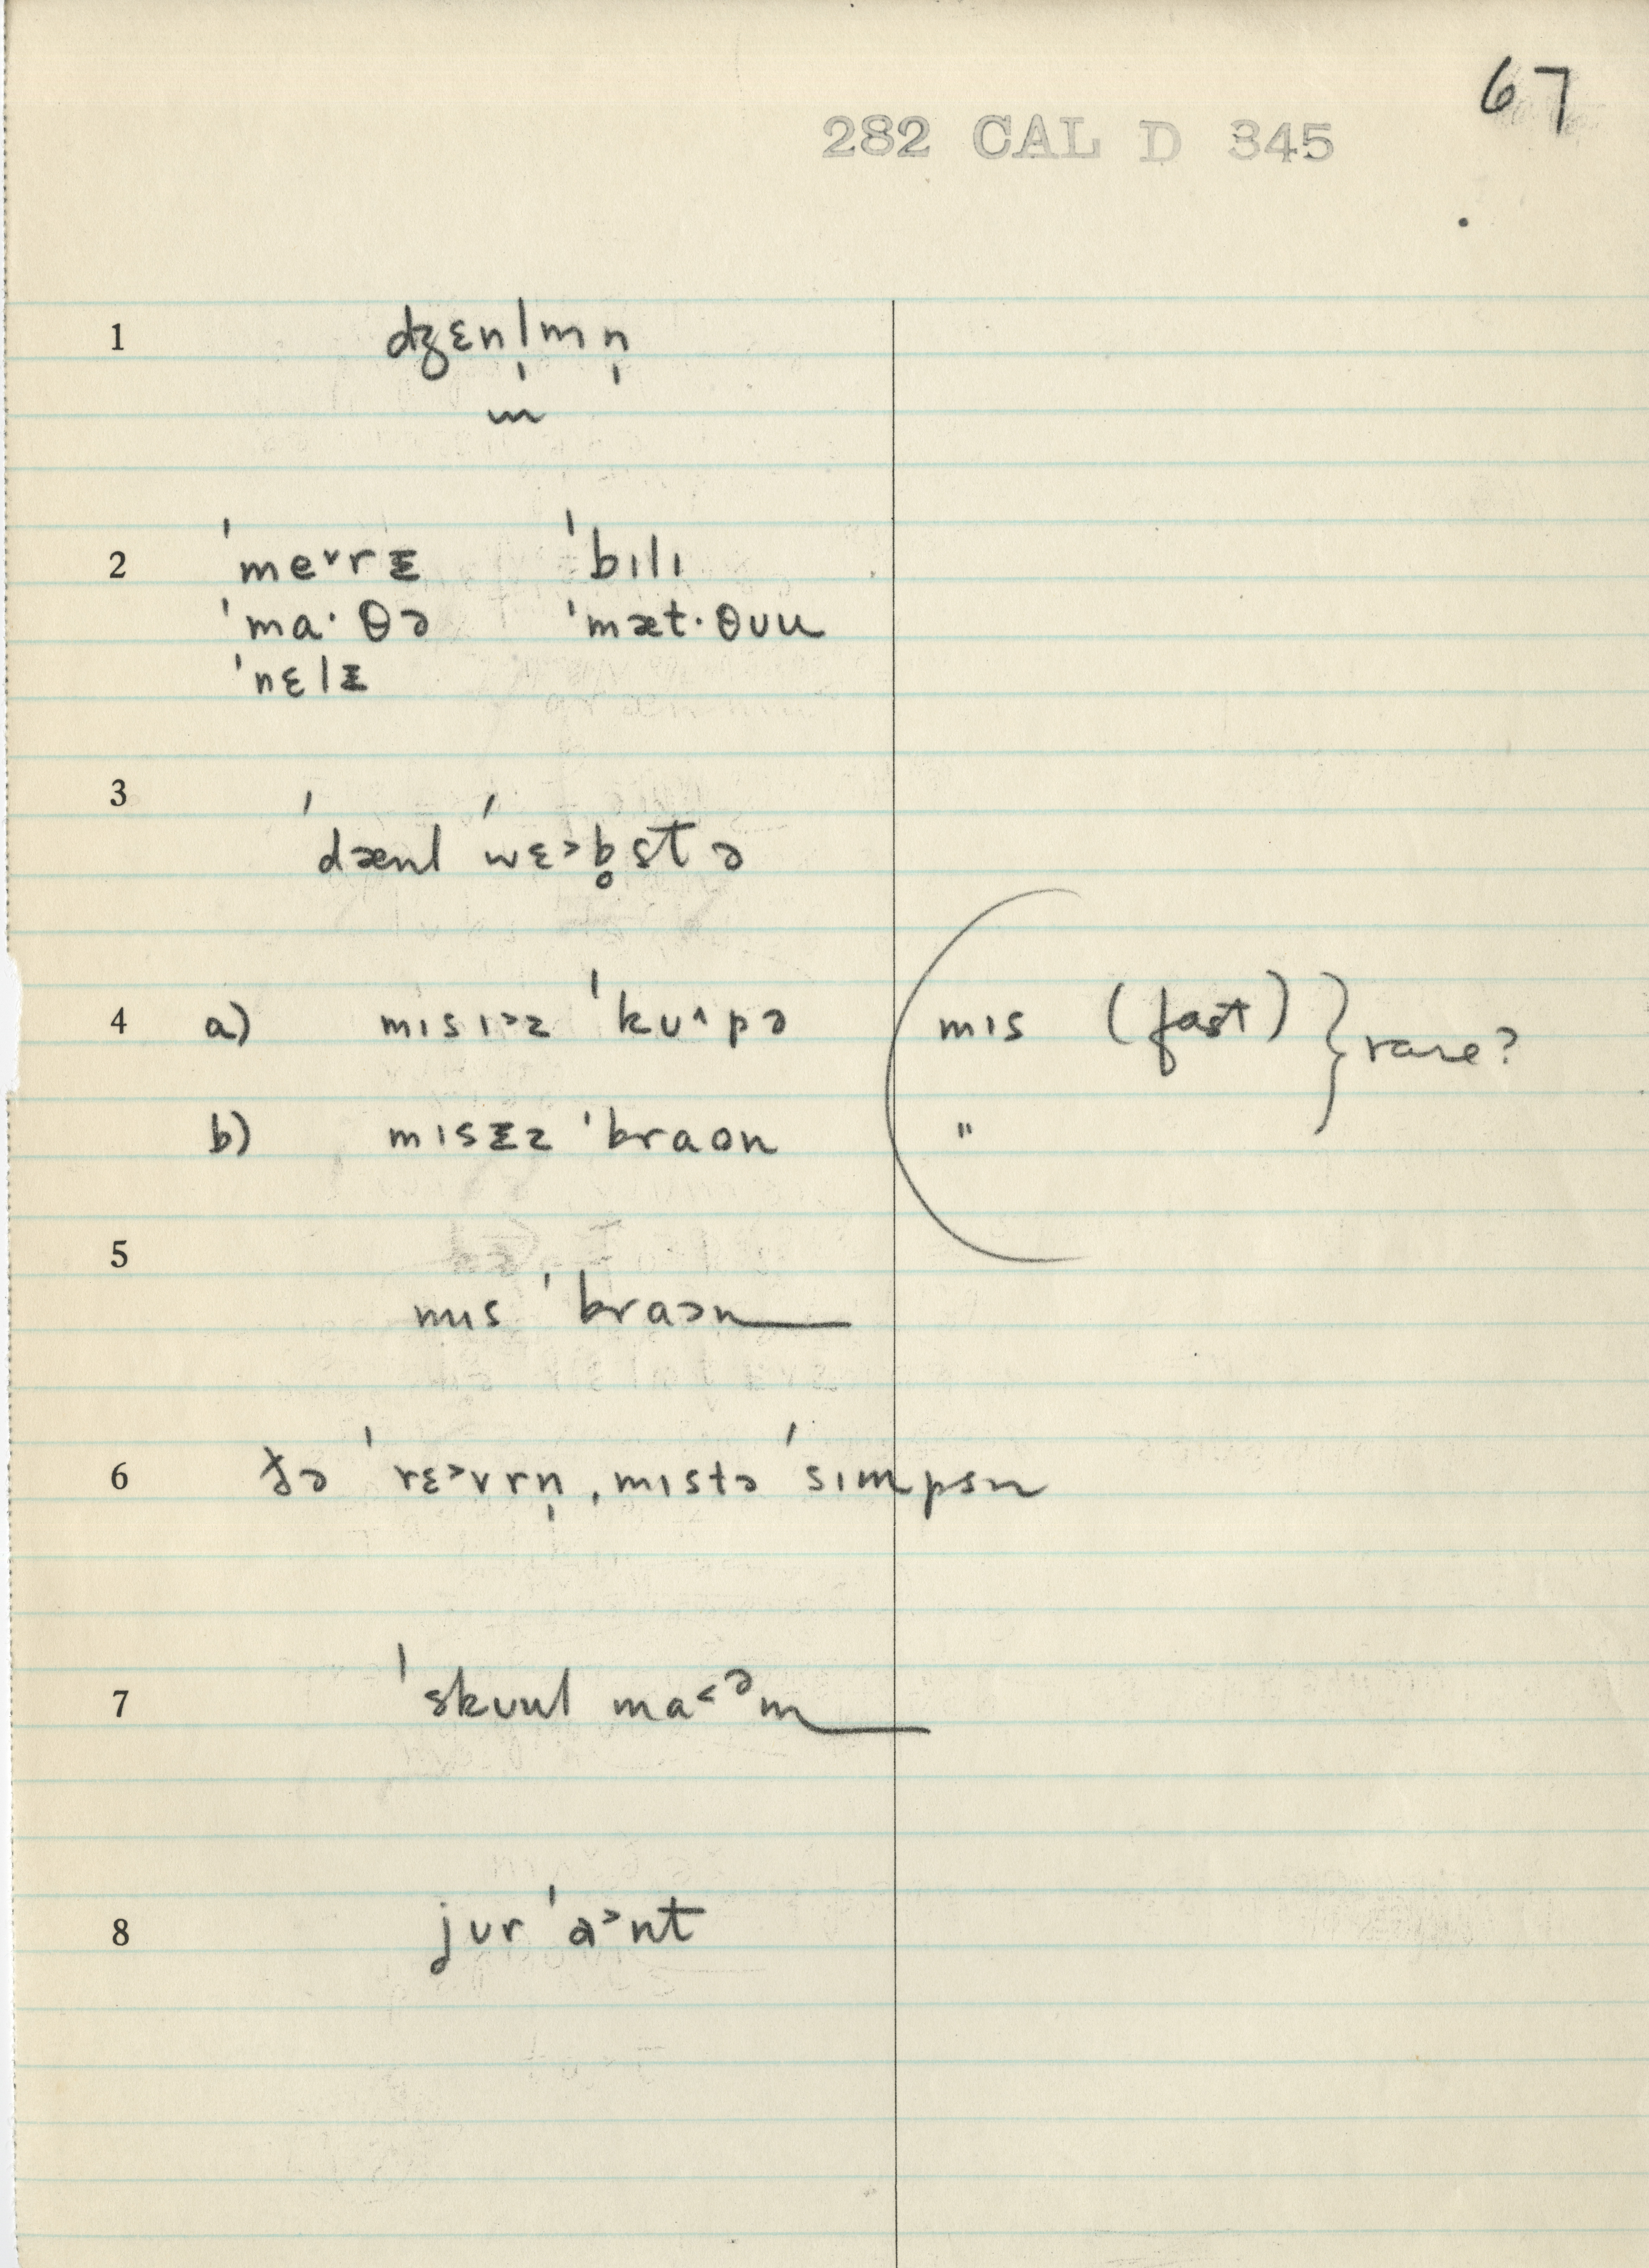 67
282 CAL D 345
1 dʒɛnl̩mn̩
m
2 ˈme˅rᵻ ˈbɪlɪ
ˈma·θə ˈmæt·θʊu
ˈnɛlᵻ
3 ˈdænl ˈwɛ˃b̥stə
4 a) mɪsɪ˃z ˈkʊ˄pə mɪs (fast) } rare?
b) mɪsᵻz ˈbraʊn "
5 mɪs ˈbraɔn
6 ðə ˈrɛ˃vrn̩ ˌmɪstə ˈsɪmpsn
7 ˈskʊul ma˂ᵊm
8 jʊr ˈa˃nt